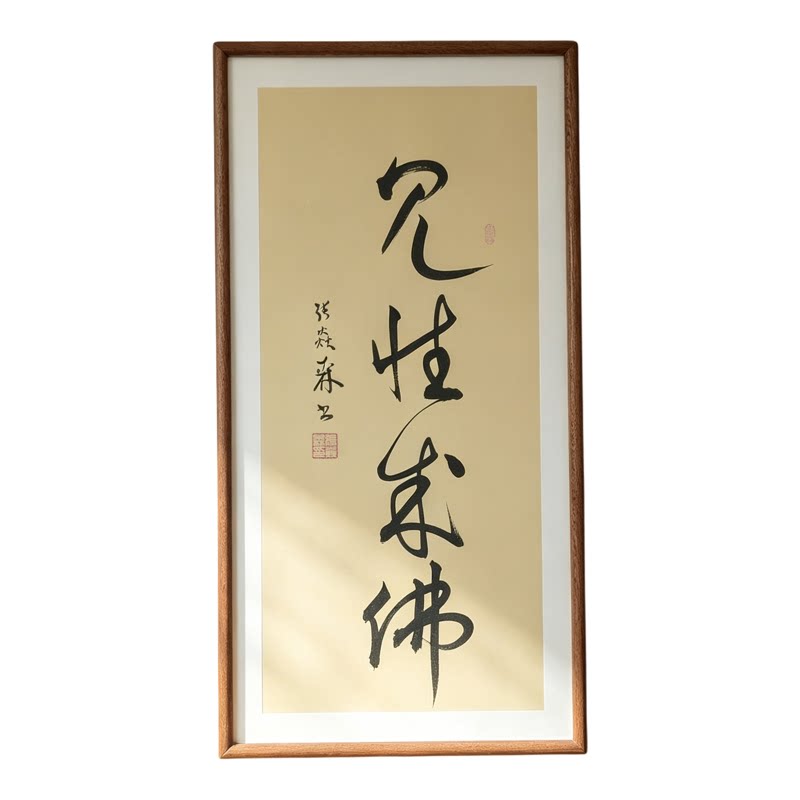 见性成佛
张焱森书